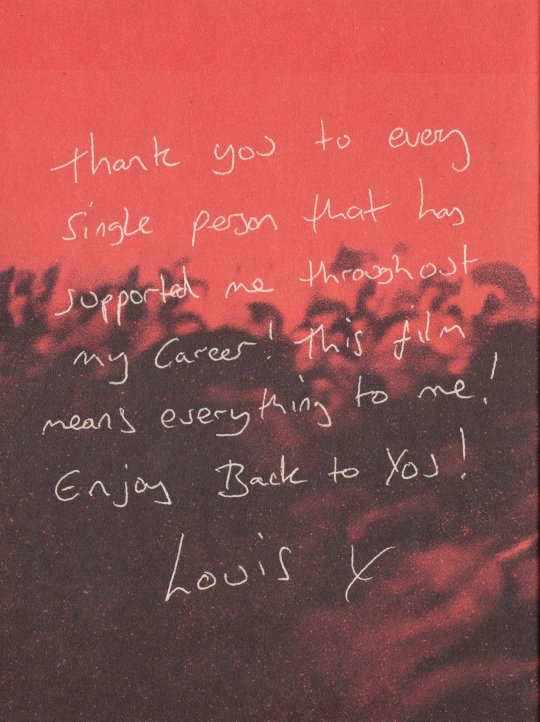 Thank you to every
single person that has
supported me throughout
my career! This film
means everything to me!
Enjoy Back to You!
Louis X